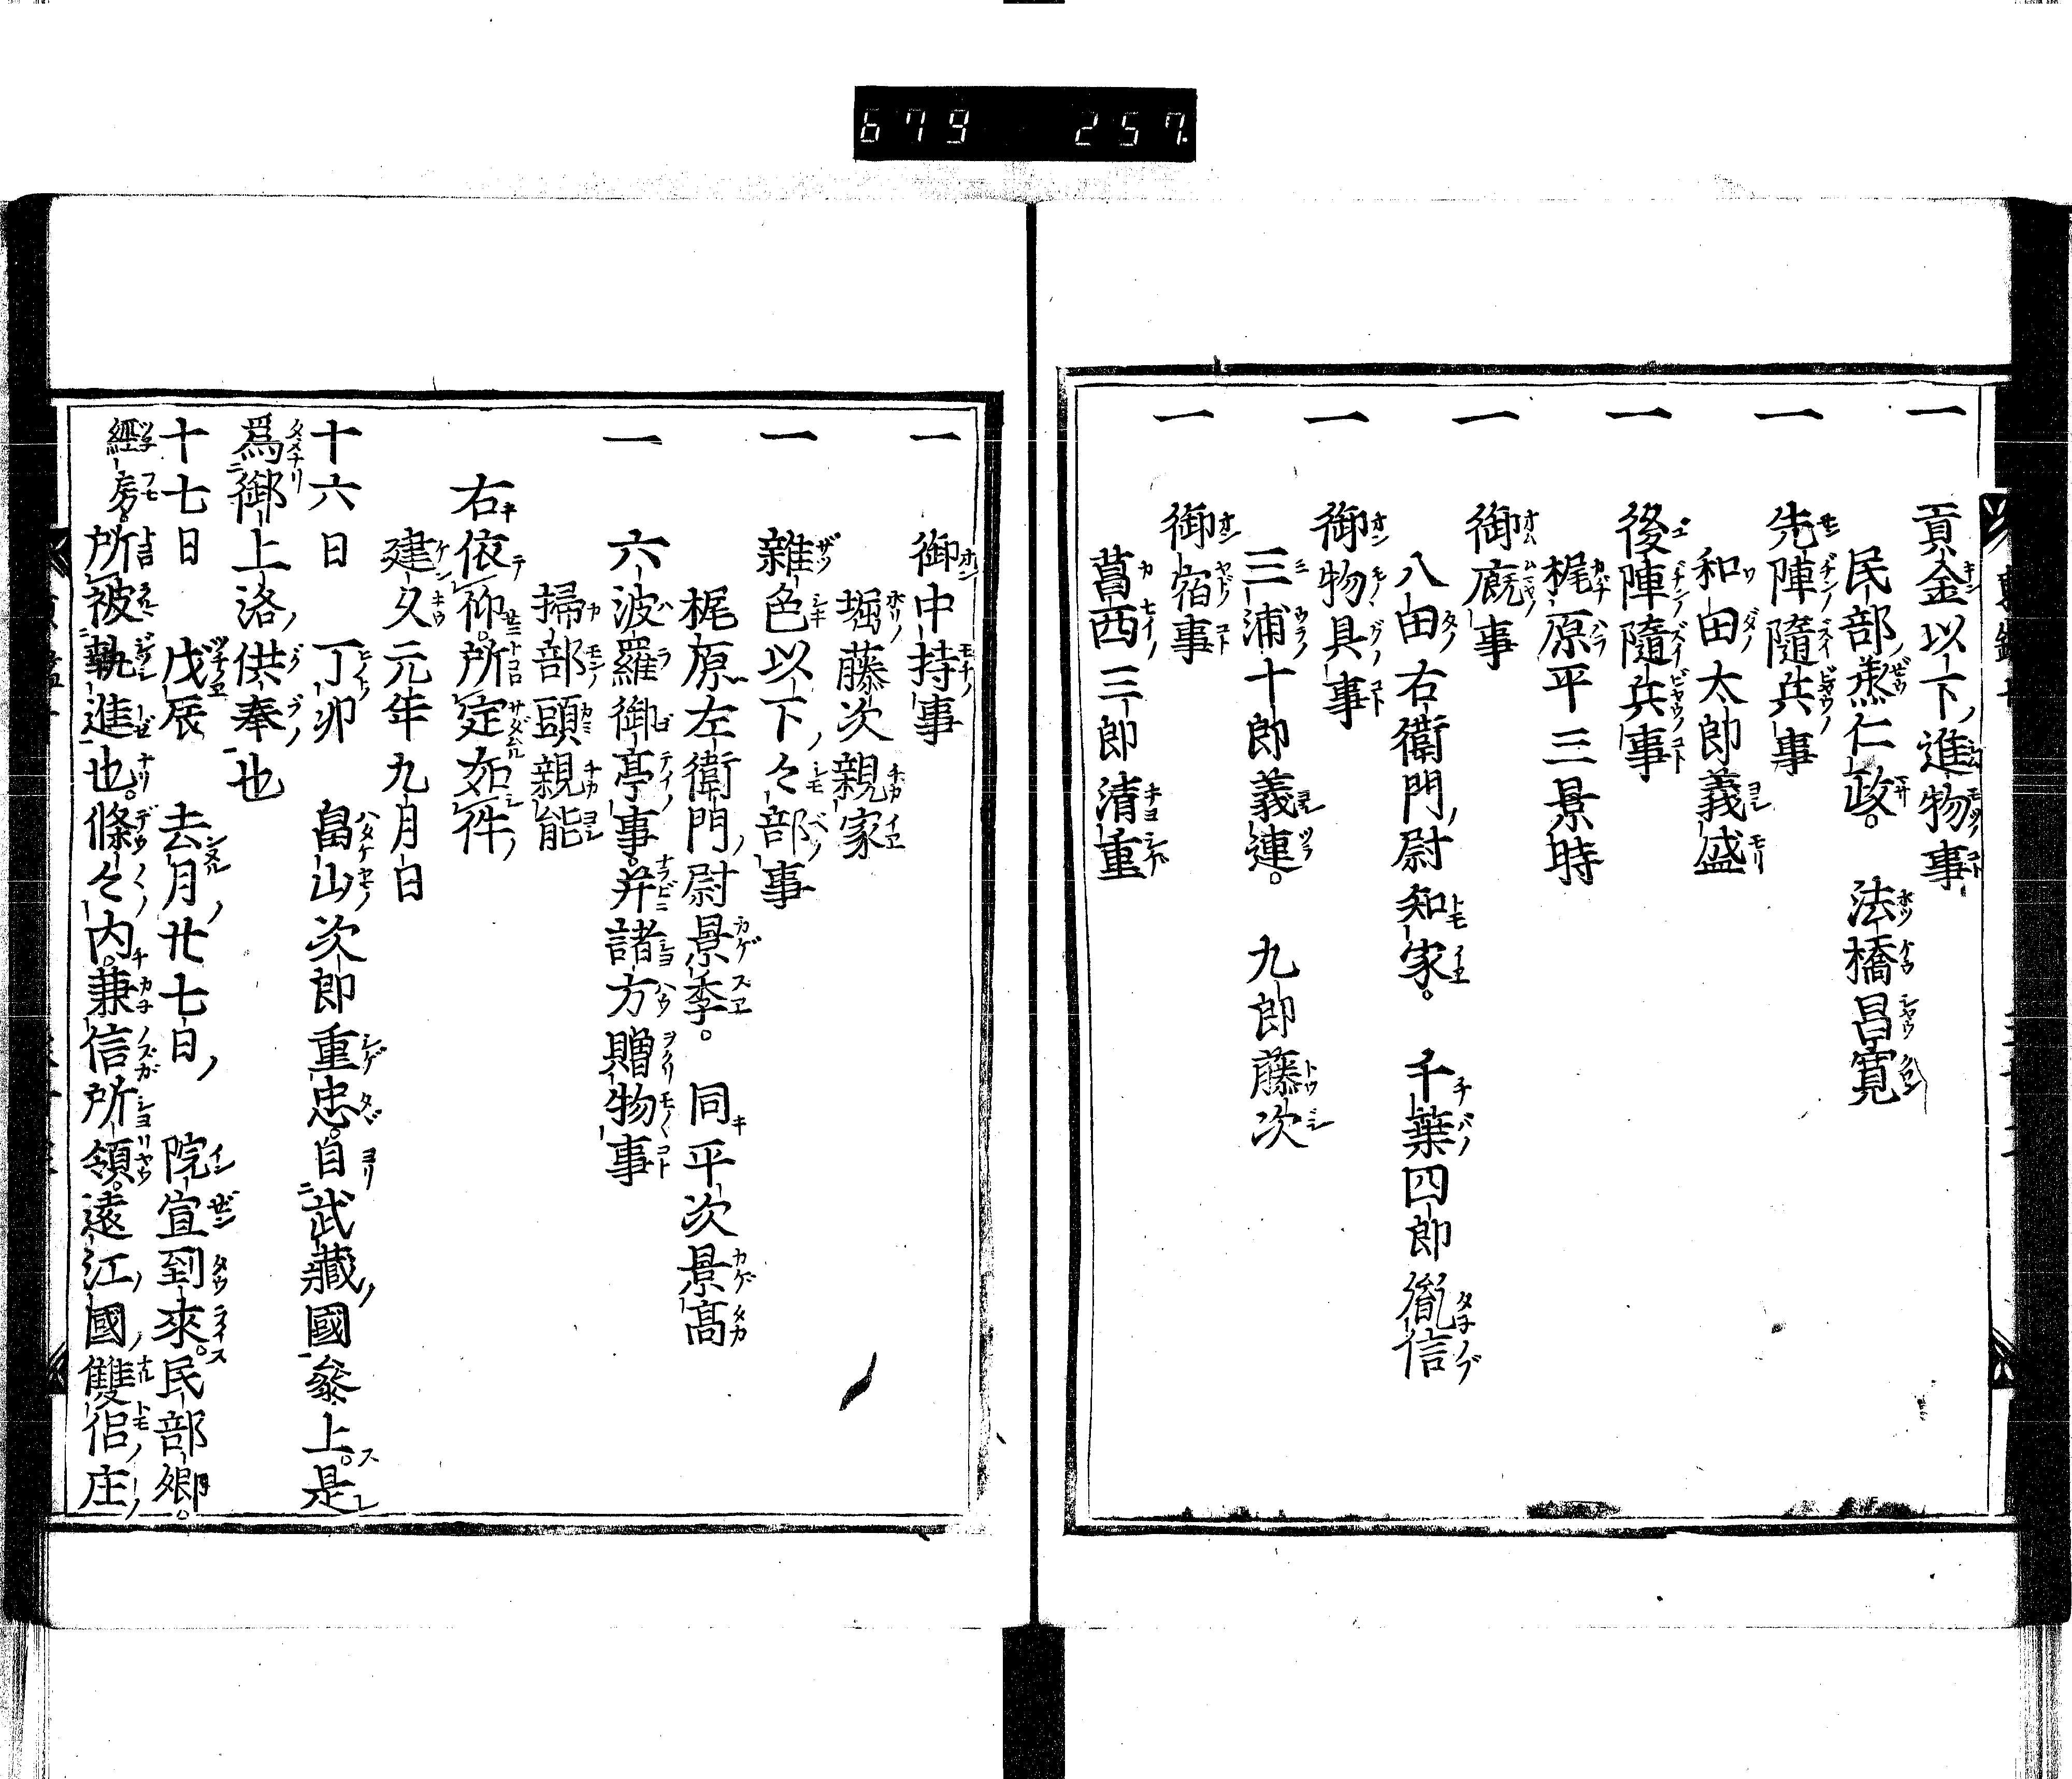 679 257
一 貢金以下進物事
民部丞仁政。 法橋昌寛
一 先陣隨兵事
和田太郎義盛
一 後陣隨兵事
梶原平三景時
一 御廐事
八田右衞門尉知家。 千葉四郎胤信
一 御物具事
三浦十郎義連。 九郎藤次
一 御宿事
葛西三郎清重
一 御中持事
堀藤次親家
一 雜色以下々部事
梶原左衞門尉景季。 同平次景髙
一 六波羅御亭事。并諸方贈物事
掃部頭親能
右依仰。所定如件
建久元年九月日
十六日 丁卯 畠山次郎重忠。自武藏國參上。是
爲御上洛供奉也
十七日 戊辰 去月廿七日 院宣到來。民部卿。
經房。所被執進也。條々内。兼信所領。遠江國雙侶庄